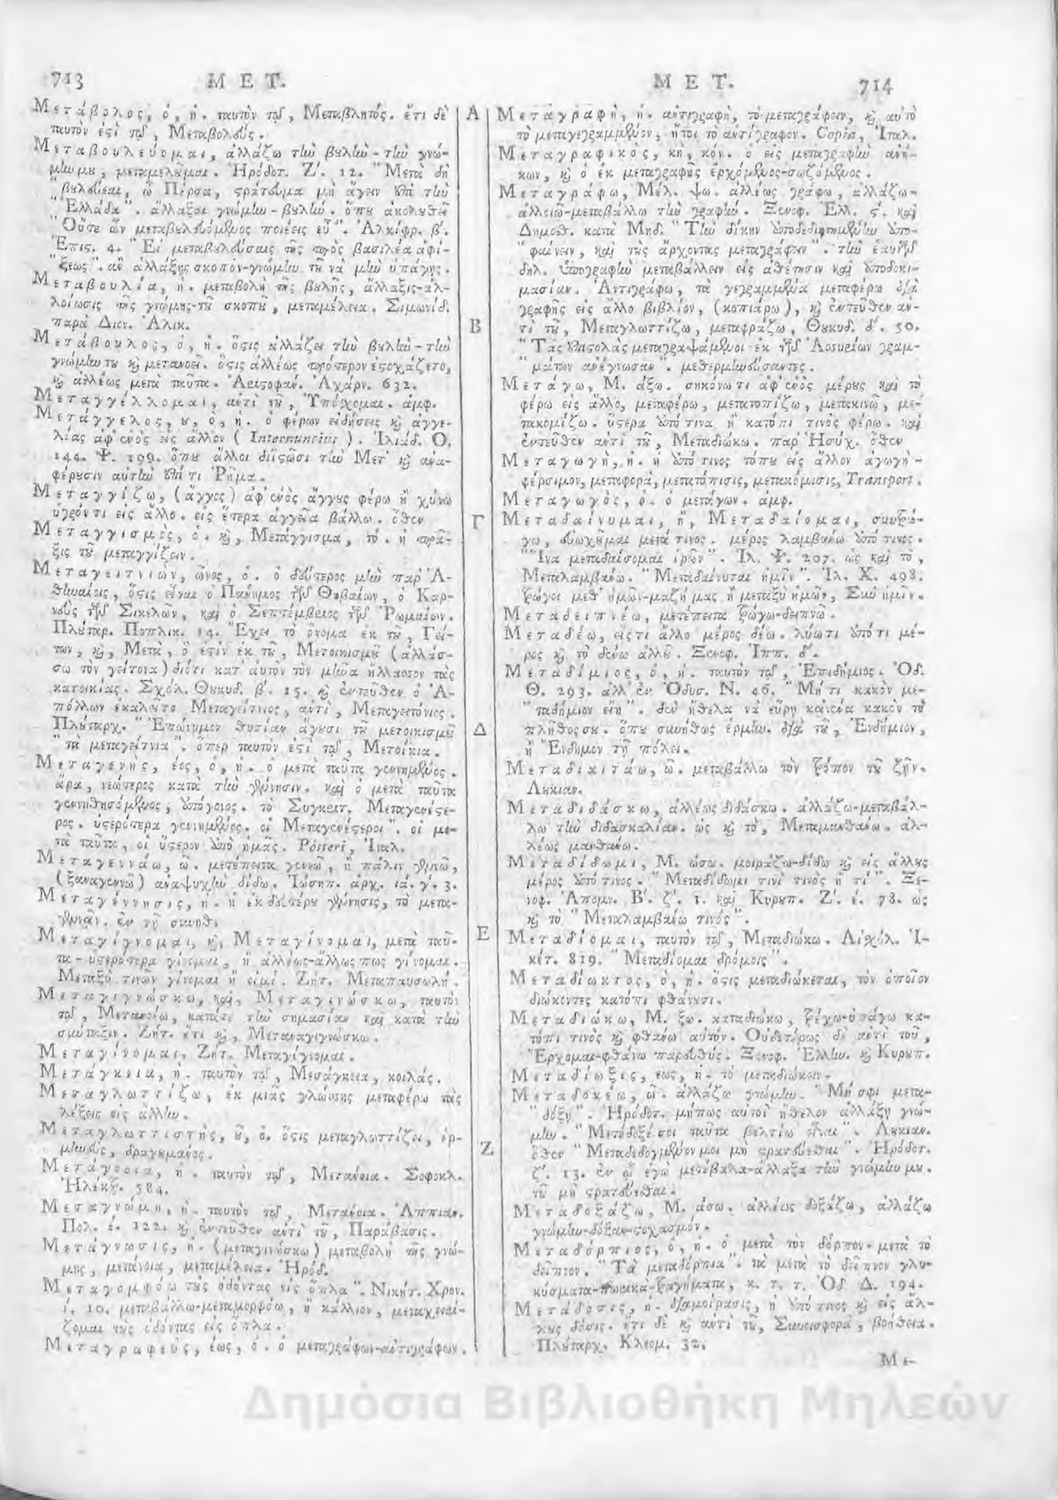 713 ΜΕΤ.
Μετάβολος, ὁ, ἡ. ταυτὸν τῷ, Μεταβλητός. ἔτι δὲ
ταυτὸν ἐςὶ τῷ, Μεταβολεύς.
Μεταβουλεύομαι, ἀλλάζω τὴν βουλὴν-τὴν γνώ-
μην μου, μεταμέλομαι. Ἡρόδοτ. Ζ΄. 12. "Μετὰ δὴ
"βουλεύεαι, ὦ Πέρσα, ςράτευμα μὴ ἄγειν ἐπὶ τὴν
"Ἑλλάδα". ἀλλάξαι γνώμην-βουλήν. ὅπου ἀκολουθεῖ
"Οὔτε ὦν μεταβουλευόμενος ποιέεις εὖ". Ἀλκίφρ. β΄.
Ἐπις. 4. "Εἰ μεταβουλεύσαις τῆς πρὸς βασιλέα ἀφί-
"ξεως". ἂν ἀλλάξῃς σκοπὸν-γνώμην τοῦ νὰ μὴν ὑπάγῃς.
Μεταβουλία, ἡ. μεταβολὴ τῆς βουλῆς, ἄλλαξις-ἀλ-
λοίωσις τῆς γνώμης-τοῦ σκοποῦ, μεταμέλεια. Σιμωνίδ.
παρὰ Διον. Ἁλικ.
Μετάβουλος, ὁ, ἡ. ὅςις ἀλλάζει τὴν βουλὴν-τὴν
γνώμην του καὶ μετανοεῖ. ὅςις ἀλλέως πρότερον ἐςοχάζετο,
καὶ ἀλλέως μετὰ ταῦτα. Ἀριςοφαν. Ἀχάρν. 632.
Μεταγγέλλομαι, ἀντὶ τοῦ, Ὑπόσχομαι. ἀμφ.
Μετάγγελος, ου, ὁ, ἡ. ὁ φέρων εἰδήσεις καὶ ἀγγε-
λίας ἀφ' ἑνὸς εἰς ἄλλον (Internuncius). Ἰλιάδ. Ο.
144. Ψ. 199. ὅπου ἄλλοι διϊςῶσι τὴν Μετ' καὶ ἀνα-
φέρουσιν αὐτὴν ἐπὶ τὶ Ῥῆμα.
Μεταγγίζω, (ἄγγος) ἀφ' ἑνὸς ἄγγους φέρω ἢ χύνω
ὑγρόν τι εἰς ἄλλο. εἰς ἕτερα ἀγγεῖα βάλλω. ὅθεν
Μεταγγισμὸς, ὁ. καὶ, Μετάγγισμα, τό. ἡ πρᾶ-
ξις τοῦ μεταγγίζειν.
Μεταγειτνιὼν, ῶνος, ὁ. ὁ δεύτερος μὴν παρ' Ἀ-
θηναίοις, ὅςις εἶναι ὁ Πάνημος τῶν Θηβαίων, ὁ Καρ-
νοῦς τῶν Σικελῶν, καὶ ὁ Σεπτέμβριος τῶν Ῥωμαίων.
Πλούταρ. Ποπλικ. 14. Ἔχει τὸ ὄνομα ἐκ τοῦ, Γεί-
των, καὶ, Μετὰ, ὅ ἐςιν ἐκ τοῦ, Μετοικισμοῦ (ἀλλάσ-
σω τὸν γείτονα) διότι κατ' αὐτὸν τὸν μῆνα ἤλλασσον τὰς
κατοικίας. Σχόλ. Θουκυδ. β΄. 15. καὶ ἐντεῦθεν ὁ Ἀ-
πόλλων ἐκαλεῖτο Μεταγείτνιος, ἀντὶ, Μεταγειτόνιος.
Πλούταρχ. "Ἐπώνυμον θυσίαν ἄγουσι τοῦ μετοικισμοῦ
"τὰ μεταγείτνια". ὅπερ ταυτὸν ἐςὶ τῷ, Μετοίκια.
Μεταγενὴς, έος, ὁ, ἡ. ὁ μετὰ ταῦτα γεννημένος.
ἄρα, νεώτερος κατὰ τὴν γέννησιν. καὶ ὁ μετὰ ταῦτα
γεννηθησόμενος, ὑπόγυιος. τὸ Συγκριτ. Μεταγενέςε-
ρος. ὑςερότερα γεννημένος. οἱ Μεταγενέςεροι. οἱ με-
τὰ ταῦτα, οἱ ὕςερον ὑπὸ ἡμᾶς. Posteri, Ἰταλ.
Μεταγεννάω, ῶ. μετέπειτα γεννῶ, ἢ πάλιν γεννῶ,
(ξαναγεννῶ) ἀναψυχὴν δίδω. Ἰώσηπ. ἀρχ. ια. γ. 3.
Μεταγέννησις, ἡ. ἡ ἐκ δευτέρου γέννησις, τὸ μετα-
γεννᾶν. ἐν τῇ συνηθ.
Μεταγίγνομαι, καὶ, Μεταγίνομαι, μετὰ ταῦ-
τα-ὑςερότερα γίνομαι, ἢ ἀλλέως-ἄλλως πως γίνομαι.
Μεταξύ τινων γίνομαι ἢ εἰμί. Ζήτ. Μεταπαυσωλή.
Μεταγιγνώσκω, καὶ, Μεταγινώσκω, ταυτὸν
τῷ, Μετανοῶ, κατά τε τὴν σημασίαν καὶ κατὰ τὴν
σύνταξιν. Ζήτ. ἔτι καὶ, Μεταναγιγνώσκω.
Μεταγίνομαι, Ζήτ. Μεταγίγνομαι.
Μετάγκεια, ἡ. ταυτὸν τῷ, Μεσάγκεια, κοιλάς.
Μεταγλωττίζω, ἐκ μιᾶς γλώσσης μεταφέρω τὰς
λέξεις εἰς ἄλλην.
Μεταγλωττιςὴς, οῦ, ὁ. ὅςις μεταγλωττίζει, ἑρ-
μηνεὺς, δραγουμάνος.
Μετάγνοια, ἡ. ταυτὸν τῷ, Μετάνοια. Σοφοκλ.
Ἠλέκτρ. 584.
Μεταγνώμη, ἡ. ταυτὸν τῷ, Μετάνοια. Ἀππιαν.
Πολ. ε. 122. καὶ ἐντεῦθεν ἀντὶ τοῦ, Παράβασις.
Μετάγνωσις, ἡ. (μεταγινώσκω) μεταβολὴ τῆς γνώ-
μης, μετάνοια, μεταμέλεια. Ἡρόδ.
Μεταγομφόω τοὺς ὀδόντας εἰς ὅπλα". Νικήτ. Χρον.
ί. 10. μεταβάλλω-μεταμορφόω, ἢ κάλλιον, μεταχειρί-
ζομαι τοὺς ὀδόντας εἰς ὅπλα.
Μεταγραφεὺς, έως, ὁ. ὁ μεταγράφων-ἀντιγράφων.
Α
Β
Γ
Δ
Ε
Ζ
ΜΕΤ. 714
Μεταγραφὴ, ἡ. ἀντιγραφὴ, τὸ μεταγράφειν, καὶ αὐτὸ
τὸ μεταγεγραμμένον, ἤτοι τὸ ἀντίγραφον. Copia, Ἰταλ.
Μεταγραφικὸς, κὴ, κόν. ὁ εἰς μεταγραφὴν ἀνή-
κων, καὶ ὁ ἐκ μεταγραφῆς ἐρχόμενος-σωζόμενος.
Μεταγράφω, Μέλ. ψω. ἀλλέως γράφω, ἀλλάζω-
ἀλλοιῶ-μεταβάλλω τὴν γραφήν. Ξενοφ. Ἑλλ. ς΄. καὶ
Δημοσθ. κατὰ Μηδ. "Τὴν δίκην ἀποδεδιῃτημένην ἀπο-
"φαίνειν, καὶ τοὺς ἄρχοντας μεταγράφειν". τὴν ἑαυτῶν
δηλ. ὑπογραφὴν μεταβάλλειν εἰς ἀθέτησιν καὶ ἀποδοκι-
μασίαν. Ἀντιγράφω, τὰ γεγραμμένα μεταφέρω διὰ
γραφῆς εἰς ἄλλο βιβλίον, (κοπιάρω), καὶ ἐντεῦθεν ἀν-
τὶ τοῦ, Μεταγλωττίζω, μεταφράζω, Θουκυδ. δ΄. 50.
"Τὰς ἐπιςολὰς μεταγραψάμενοι ἐκ τῶν Ἀσσυρίων γραμ-
"μάτων ἀνέγνωσαν. μεθερμηνεύσαντες.
Μετάγω, Μ. άξω. σηκόνω τὶ ἀφ' ἑνὸς μέρους καὶ τὸ
φέρω εἰς ἄλλο, μεταφέρω, μετατοπίζω, μετακινῶ, με-
τακομίζω. ὕςερα ἀπό τινα ἢ κατόπι τινὸς φέρω. καὶ
ἐντεῦθεν ἀντὶ τοῦ, Μεταδιώκω. παρ' Ἡσύχ. ὅθεν
Μεταγωγὴ, ἡ. ἡ ἀπό τινος τόπου εἰς ἄλλον ἀγωγὴ-
φέρσιμον, μεταφορά, μετατόπισις, μετακόμισις, Transport.
Μεταγωγὸς, ὁ. ὁ μετάγων. ἀμφ.
Μεταδαίνυμαι, ἢ, Μεταδαίομαι, συντρώ-
γω, εὐωχοῦμαι μετά τινος. μέρος λαμβάνω ἀπό τινος.
""Ινα μεταδαίσομαι ἱρῶν". Ἰλ. Ψ. 207. ὡς καὶ τὸ,
Μεταλαμβάνω. "Μεταδαίνυται ἡμῖν". Ἰλ. Χ. 498.
τρώγει μεθ' ἡμῶν-μαζή μας ἢ μεταξὺ ἡμῶν, Σὺν ἡμῖν.
Μεταδειπνέω, μετέπειτα τρώγω-δειπνῶ.
Μεταδέω, εἴς τι ἄλλο μέρος δένω. λύω τὶ ἀπό τι μέ-
ρος καὶ τὸ δένω ἀλλοῦ. Ξενοφ. Ἱππ. δ΄.
Μεταδήμιος, ὁ, ἡ. ταυτὸν τῷ, Ἐπιδήμιος. Ὀδ.
Θ. 293. ἀλλ' ἐν Ὀδυσ. Ν. 46. "Μή τι κακὸν με-
"ταδήμιον εἴη". δὲν ἤθελα νὰ εὕρῃ κανένα κακὸν τὸ
πλῆθός σου. ὅπου συνήθως ἑρμην. διὰ τοῦ, Ἐνδήμιον,
ἢ Ἔνδημον τῇ πόλει.
Μεταδιαιτάω, ῶ. μεταβάλλω τὸν τρόπον τοῦ ζῆν.
Λουκιαν.
Μεταδιδάσκω, ἀλλέως διδάσκω. ἀλλάζω-μεταβάλ-
λω τὴν διδασκαλίαν. ὡς καὶ τὸ, Μεταμανθάνω. ἀλ-
λέως μανθάνω.
Μεταδίδωμι, Μ. ώσω. μοιράζω-δίδω καὶ εἰς ἄλλους
μέρος ἀπό τινος. "Μεταδίδωμι τινί τινος ἤ τί". Ξε-
νοφ. Ἀπομν. Β΄. ζ΄. 1. καὶ Κυρουπ. Ζ΄. ε. 78. ὡς
καὶ τὸ "Μεταλαμβάνω τινός".
Μεταδίομαι, ταυτὸν τῷ, Μεταδιώκω. Αἰσχύλ. Ἱ-
κέτ. 819. "Μεταδίομαι δρόμοις".
Μεταδίωκτος, ὁ, ἡ. ὅςις μεταδιώκεται, τὸν ὁποῖον
διώκοντες κατόπι φθάνουσι.
Μεταδιώκω, Μ. ξω. καταδιώκω, τρέχω-ὑπάγω κα-
τόπι τινὸς καὶ φθάνω αὐτόν. Οὐδετέρως δὲ ἀντὶ τοῦ,
Ἔρχομαι-φθάνω παρευθύς. Ξενοφ. Ἑλλην. καὶ Κυρουπ.
Μεταδίωξις, εως, ἡ. τὸ μεταδιώκειν.
Μεταδοκέω, ῶ. ἀλλάζω γνώμην. "Μή σφι μετα-
"δόξῃ". Ἡρόδοτ. μήπως αὐτοὶ ἤθελον ἀλλάξῃ γνώ-
μην. "Μετέδοξέ σοι ταῦτα βελτίω εἶναι". Λουκιαν.
ὅθεν "Μεταδεδογμένον μοι μὴ ςρατεύεσθαι". Ἡρόδοτ.
ζ΄. 13. ἐν ᾧ ἐγὼ μετέβαλα-ἄλλαξα τὴν γνώμην μου.
τοῦ μὴ ςρατεύεσθαι.
Μεταδοξάζω, Μ. άσω. ἀλλέως δοξάζω, ἀλλάζω
γνώμην-δόξαν-ςοχασμόν.
Μεταδόρπιος, ὁ, ἡ. ὁ μετὰ τὸν δόρπον-μετὰ τὸ
δεῖπνον. "Τὰ μεταδόρπια". τὰ μετὰ τὸ δεῖπνον γλυ-
κύσματα-πωρικὰ-τραγήματα, κ. τ. τ. Ὀδ. Δ. 194.
Μετάδοσις, ἡ. διαμοίρασις, ἡ ἀπό τινος καὶ εἰς ἄλ-
λους δόσις. ἔτι δὲ καὶ ἀντὶ τοῦ, Συνεισφορά, βοήθεια.
Πλούταρχ. Κλεομ. 32.
Με-
Δημόσια Βιβλιοθήκη Μηλεών